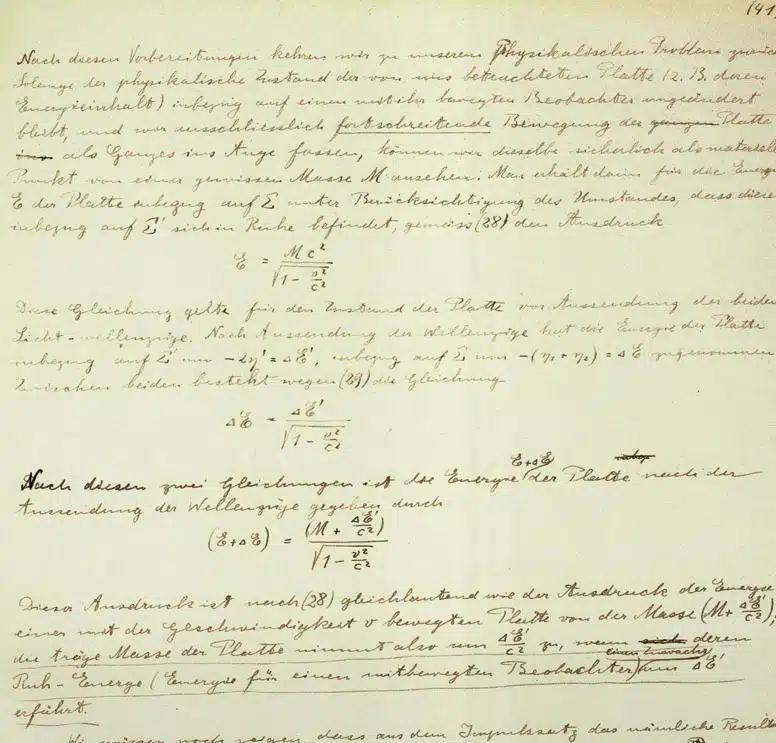 (41)
Nach diesen Vorbereitungen kehren wir zu unserem Physikalischen Problem zurück
Solange der physikalische Zustand der von uns betrachteten Platte (z. B. deren
Energieinhalt) inbezug auf einen mit ihr bewegten Beobachter ungeändert
bleibt, und wir ausschliesslich fortschreitende Bewegung der ganzen Platte
als Ganzes ins Auge fassen, können wir dieselbe sicherlich als materiell
Punkt von einer gewissen Masse M ansehen. Man erhält dann für die Energie
E der Platte inbezug auf Σ unter Berücksichtigung des Umstandes, dass diese
inbezug auf Σ' sich in Ruhe befindet, gemäss (28) den Ausdruck
E = Mc² / √(1 - v²/c²)
Diese Gleichung gelte für den Zustand der Platte vor Aussendung der beiden
Licht-wellenzüge. Nach Aussendung der Wellenzüge hat die Energie der Platte
inbezug auf Σ' um -2η' = ΔE', inbezug auf Σ um -(η₁ + η₂) = ΔE zugenommen
Zwischen beiden besteht wegen (29) die Gleichung
ΔE = ΔE' / √(1 - v²/c²)
Nach diesen zwei Gleichungen ist die Energie E+ΔE der Platte nach der
Aussendung der Wellenzüge gegeben durch
(E+ΔE) = (M + ΔE'/c²) / √(1 - v²/c²)
Dieser Ausdruck ist nach (28) gleichlautend wie der Ausdruck der Energie
einer mit der Geschwindigkeit v bewegten Platte von der Masse (M + ΔE'/c²);
die träge Masse der Platte nimmt also um ΔE'/c² zu, wenn sich deren
Ruh-Energie (Energie für einen mitbewegten Beobachter) einen Zuwachs um ΔE'
erführt.
Wir müssen noch zeigen, dass aus dem Impulssatz das nämliche Resultat